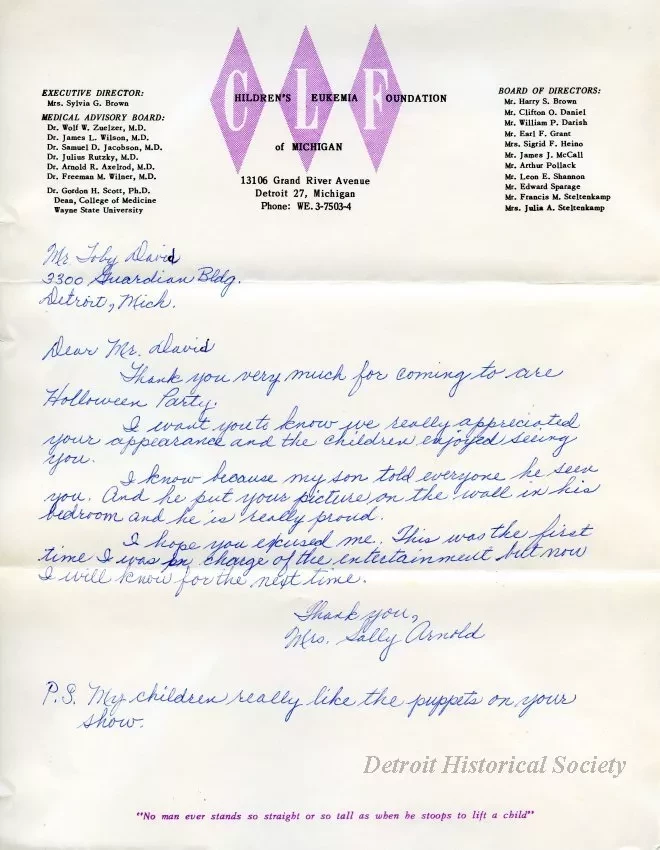 EXECUTIVE DIRECTOR:
Mrs. Sylvia G. Brown
MEDICAL ADVISORY BOARD:
Dr. Wolf W. Zuelzer, M.D.
Dr. James L. Wilson, M.D.
Dr. Samuel D. Jacobson, M.D.
Dr. Julius Rutzky, M.D.
Dr. Arnold R. Axelrod, M.D.
Dr. Freeman M. Wilner, M.D.
Dr. Gordon H. Scott, Ph.D.
Dean, College of Medicine
Wayne State University
CHILDREN'S LEUKEMIA FOUNDATION
of MICHIGAN
13106 Grand River Avenue
Detroit 27, Michigan
Phone: WE. 3-7503-4
BOARD OF DIRECTORS:
Mr. Harry S. Brown
Mr. Clifton O. Daniel
Mr. William P. Darish
Mr. Earl F. Grant
Mrs. Sigrid F. Heino
Mr. James J. McCall
Mr. Arthur Pollack
Mr. Leon E. Shannon
Mr. Edward Sparage
Mr. Francis M. Steltenkamp
Mrs. Julia A. Steltenkamp
Mr Toby David
3300 Guardian Bldg.
Detroit, Mich.
Dear Mr. David
Thank you very much for coming to are
Holloween Party.
I want you to know we really appreciated
your appearance and the children enjoyed seeing
you.
I know because my son told everyone he seen
you. And he put your picture on the wall in his
bedroom and he is really proud.
I hope you excused me. This was the first
time I was in charge of the entertainment but now
I will know for the next time.
Thank you,
Mrs. Sally Arnold
P.S. My children really like the puppets on your
show.
Detroit Historical Society
"No man ever stands so straight or so tall as when he stoops to lift a child"